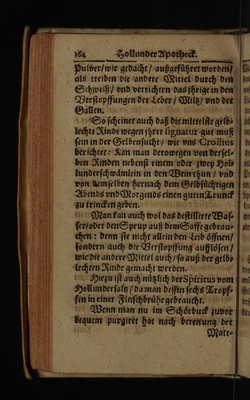 164 Hollunder Apotheck.
Pulver/wie gedacht/außgeführet worden/
als treiben die andere Mittel durch den
Schweiß/ und verrichten das ihrige in den
Verstopffungen der Leber/ Miltz/ und der
Gallen.
So scheinet auch daß die mittelste gelb-
lechte Rinde wegen jhrer signatur gut muß
sein in der Gelbensucht/ wie uns Crollius
berichtet: Kan man derowegen von dersel-
ben Rinden nebenst einem oder zwey Hol-
lunderschwämlein in den Wein thun/ und
von demselben hernach dem Gelbsüchtigen
Abends und Morgends einen guten Trunck
zu trincken geben.
Man kan auch wol das destillirte Was-
ser/oder den Syrup auß dem Saffte gebrau-
chen: denn sie nicht allein den Leib öffnen/
sondern auch die Verstopffung aufflösen/
wie die andere Mittel auch/ so auß der gelb-
lechten Rinde gemacht werden.
Hiezu ist auch nützlich der Spiritus vom
Hollundersaltz/ da man dessen sechs Tropf-
fen in einer Fleischbrühe gebraucht.
Wenn man nu im Schörbuck zuvor
bequem purgiret hat nach bereitung der
Mate-